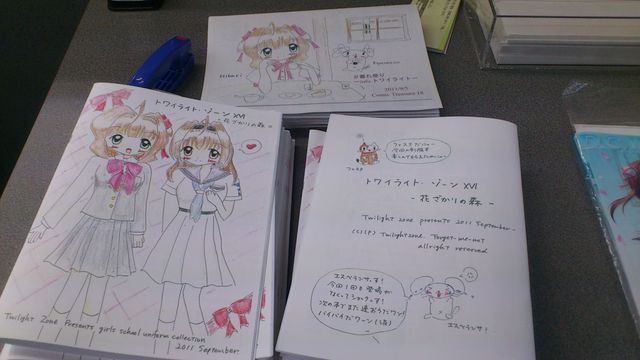 Hikari
Esperanza
#離れ祭り
2011/9/5
Comic Treasure 18
トワイライト・ゾーン XVI
- 花ざかりの森 -
Twilight Zone Presents girls school uniform collection
2011 September
フェスタ
トワイライト ゾーン XVI
- 花ざかりの森 -
Twilight zone presents 2011 September-
(C)(P) Twilightzone. Forget-me-not
allright reserved
エスペランサっす!
今回1回も登場が
なくってショックっす!
次の本でまた逢おうだワン!
バイバイだワーン!
エスペランサ!